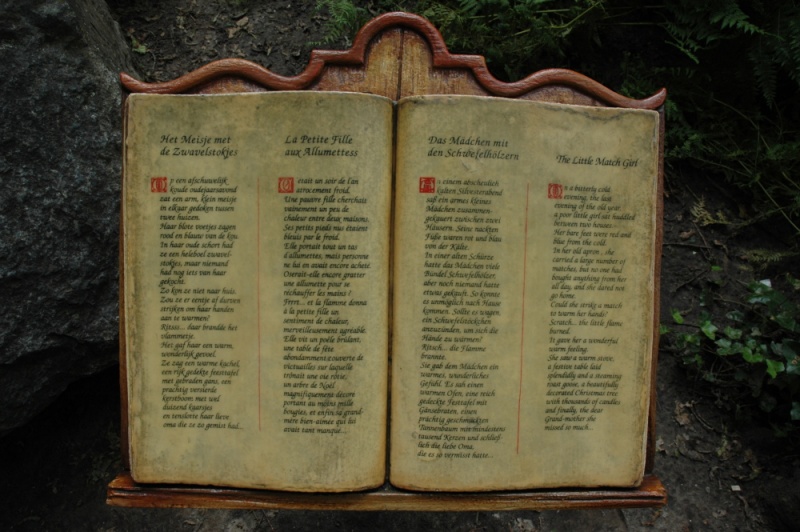 Het Meisje met
de Zwavelstokjes
Op een afschuwelijk
koude oudejaarsavond
zat een arm, klein meisje
in elkaar gedoken tussen
twee huizen.
Haar blote voetjes zagen
rood en blauw van de kou.
In haar oude schort had
ze een heleboel zwavel-
stokjes, maar niemand
had nog iets van haar
gekocht.
Zo kon ze niet naar huis.
Zou ze er eentje af durven
strijken om haar handen
aan te warmen?
Ritsss... haar brandde het
vlammetje.
Het gaf haar een warm,
wonderlijk gevoel.
Ze zag een warme kachel,
een rijk gedekte feesttafel
met gebraden gans, een
prachtig versierde
kerstboom met wel
duizend kaarsjes
en tenslotte haar lieve
oma die ze zo gemist had...
La Petite Fille
aux Allumettess
C'etait un soir de l'an
atrocement froid.
Une pauvre fille cherchait
vainement un peu de
chaleur entre deux maisons.
Ses petits pieds nus étaient
bleuis par le froid.
Elle portait tout un tas
d'allumettes, mais personne
ne lui en avait encore acheté.
Oserait-elle encore gratter
une allumette pour se
réchauffer les mains?
Frrrt... et la flamme donna
à la petite fille un
sentiment de chaleur,
merveilleusement agréable.
Elle vit un poêle brûlant,
une table de fête
abondamment couverte de
victuailles sur laquelle
trônait une oie rôtie,
un arbre de Noël
magnifiquement décoré
portant au moins mille
bougies, et enfin sa grand-
mère bien-aimée qui lui
avait tant manqué...
Das Mädchen mit
den Schwefelhölzern
An einem abscheulich
kalten Silvesterabend
saß ein armes kleines
Mädchen zusammen-
gekauert zwischen zwei
Häusern. Seine nackten
Füße waren rot und blau
von der Kälte.
In einer alten Schürze
hatte das Mädchen viele
Bündel Schwefelhölzer,
aber noch niemand hatte
etwas gekauft. So konnte
es unmöglich nach Hause
kommen. Sollte es wagen,
ein Schwefelstöckchen
anzuzünden, um sich die
Hände zu wärmen?
Ritsch... die Flamme
brannte.
Sie gab dem Mädchen ein
warmes, wunderliches
Gefühl. Es sah einen
warmen Ofen, eine reich
gedeckte Festtafel mit
Gänsebraten, einen
prächtig geschmückten
Tannenbaum mit mindestens
tausend Kerzen und schließ-
lich die liebe Oma,
die es so vermisst hatte...
The Little Match Girl
On a bitterly cold
evening, the last
evening of the old year
a poor little girl sat huddled
between two houses.
Her bare feet were red and
blue from the cold.
In her old apron, she
carried a large number of
matches, but no one had
bought anything from her
all day, and she dared not
go home.
Could she strike a match
to warm her hands?
Scratch... the little flame
burned.
It gave her a wonderful
warm feeling.
She saw a warm stove,
a festive table laid
splendidly and a steaming
roast goose, a beautifully
decorated Christmas tree
with thousands of candles
and finally, the dear
Grand-mother she
missed so much...